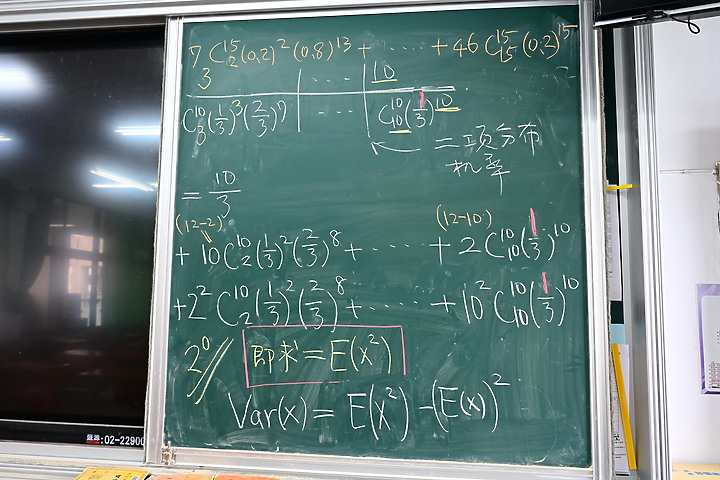 7 C₂¹⁵(0.2)²(0.8)¹³ + ⋯⋯ + 46 C₁₅¹⁵(0.2)¹⁵
3 | ⋯⋯ | 10
C₃¹⁰(1/3)³(2/3)⁷ | ⋯⋯ | C₁₀¹⁰(1/3)¹⁰
= 二項分布
机率
= 10/3
(12-2) (12-10)
+ 10 C₂¹⁰(1/3)²(2/3)⁸ + ⋯⋯ + 2 C₁₀¹⁰(1/3)¹⁰
+ 2² C₂¹⁰(1/3)²(2/3)⁸ + ⋯⋯ + 10² C₁₀¹⁰(1/3)¹⁰
2⁰ 即求 = E(X²)
Var(X) = E(X²) - (E(X))²
盛源:02-2290